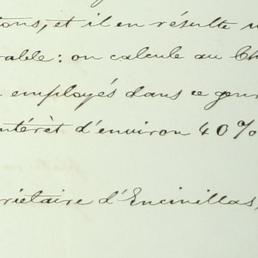 tions, et il en résulte u
rable: on calcule au Ch
employés dans ce genr
intérêt d'environ 40%
priétaire d'Encinillas,